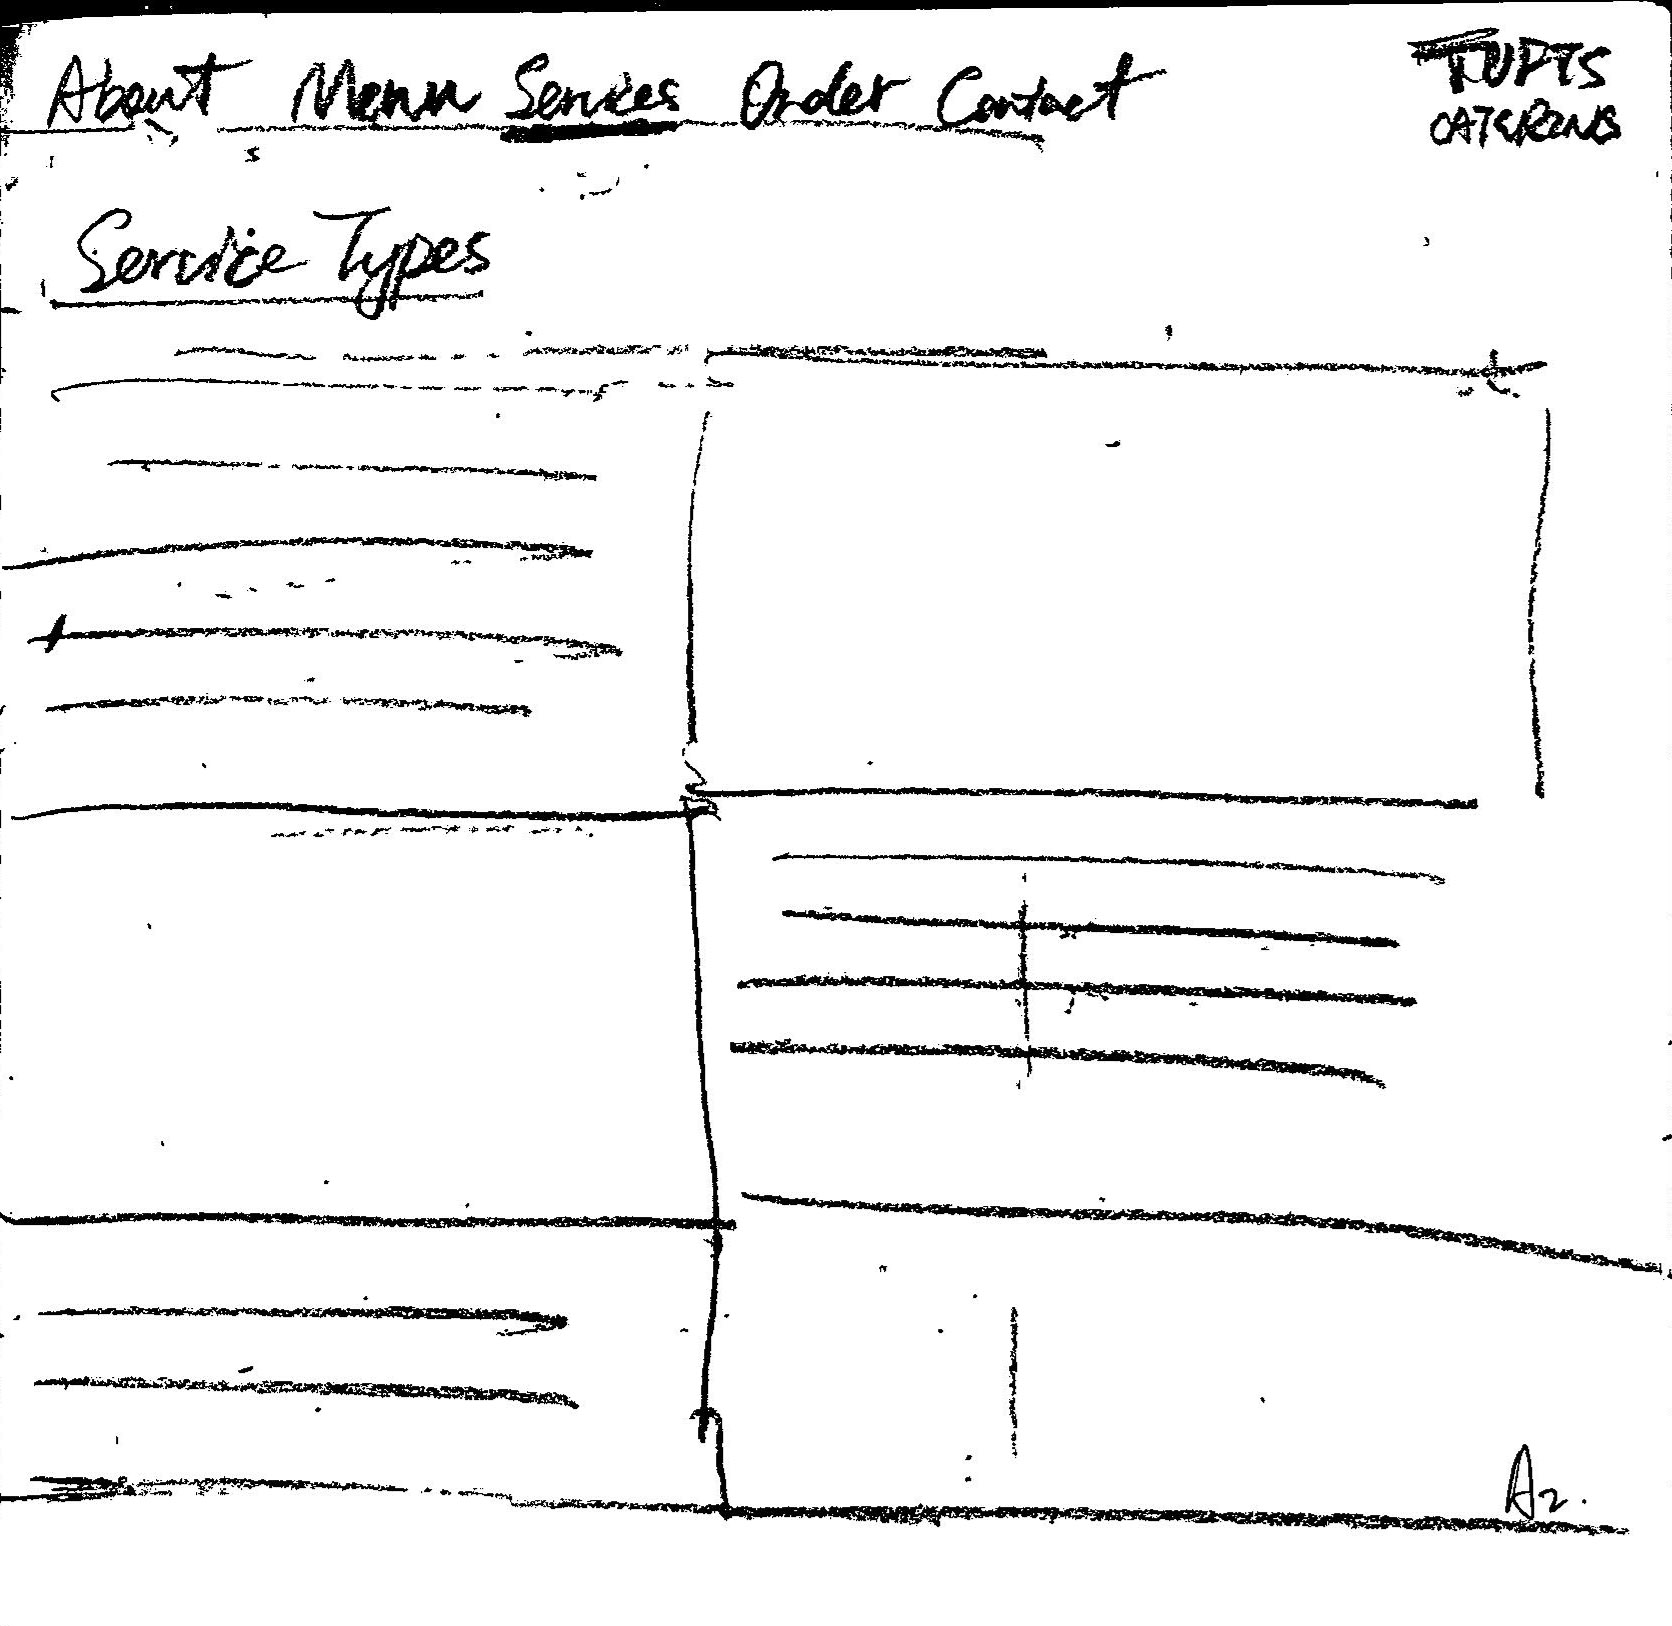 About Menu Services Order Contact
TUFTS
CATERING
Service Types
A2.